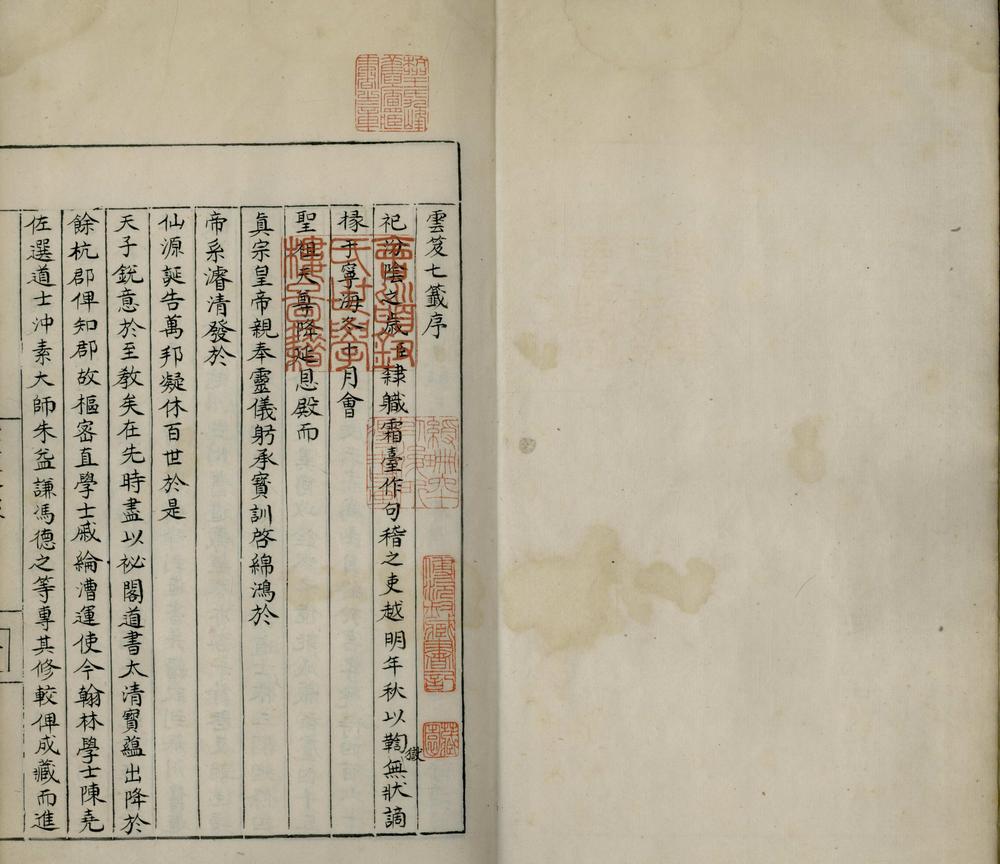 雲笈七籤序
祀汾陰之歲臣隸職霜臺作句稽之吏越明年秋以鞫無狀謫
獄
掾于寧海冬十月會
聖祖天尊降延恩殿而
眞宗皇帝親奉靈儀躬承寳訓啓綿鴻於
帝系濬清發於
仙源誕告萬邦凝休百世於是
天子銳意於至敎矣在先時盡以祕閣道書太清寳蘊出降於
餘杭郡俾知郡故樞密直學士戚綸漕運使今翰林學士陳堯
佐選道士沖素大師朱益謙馮德之等專其修較俾成藏而進